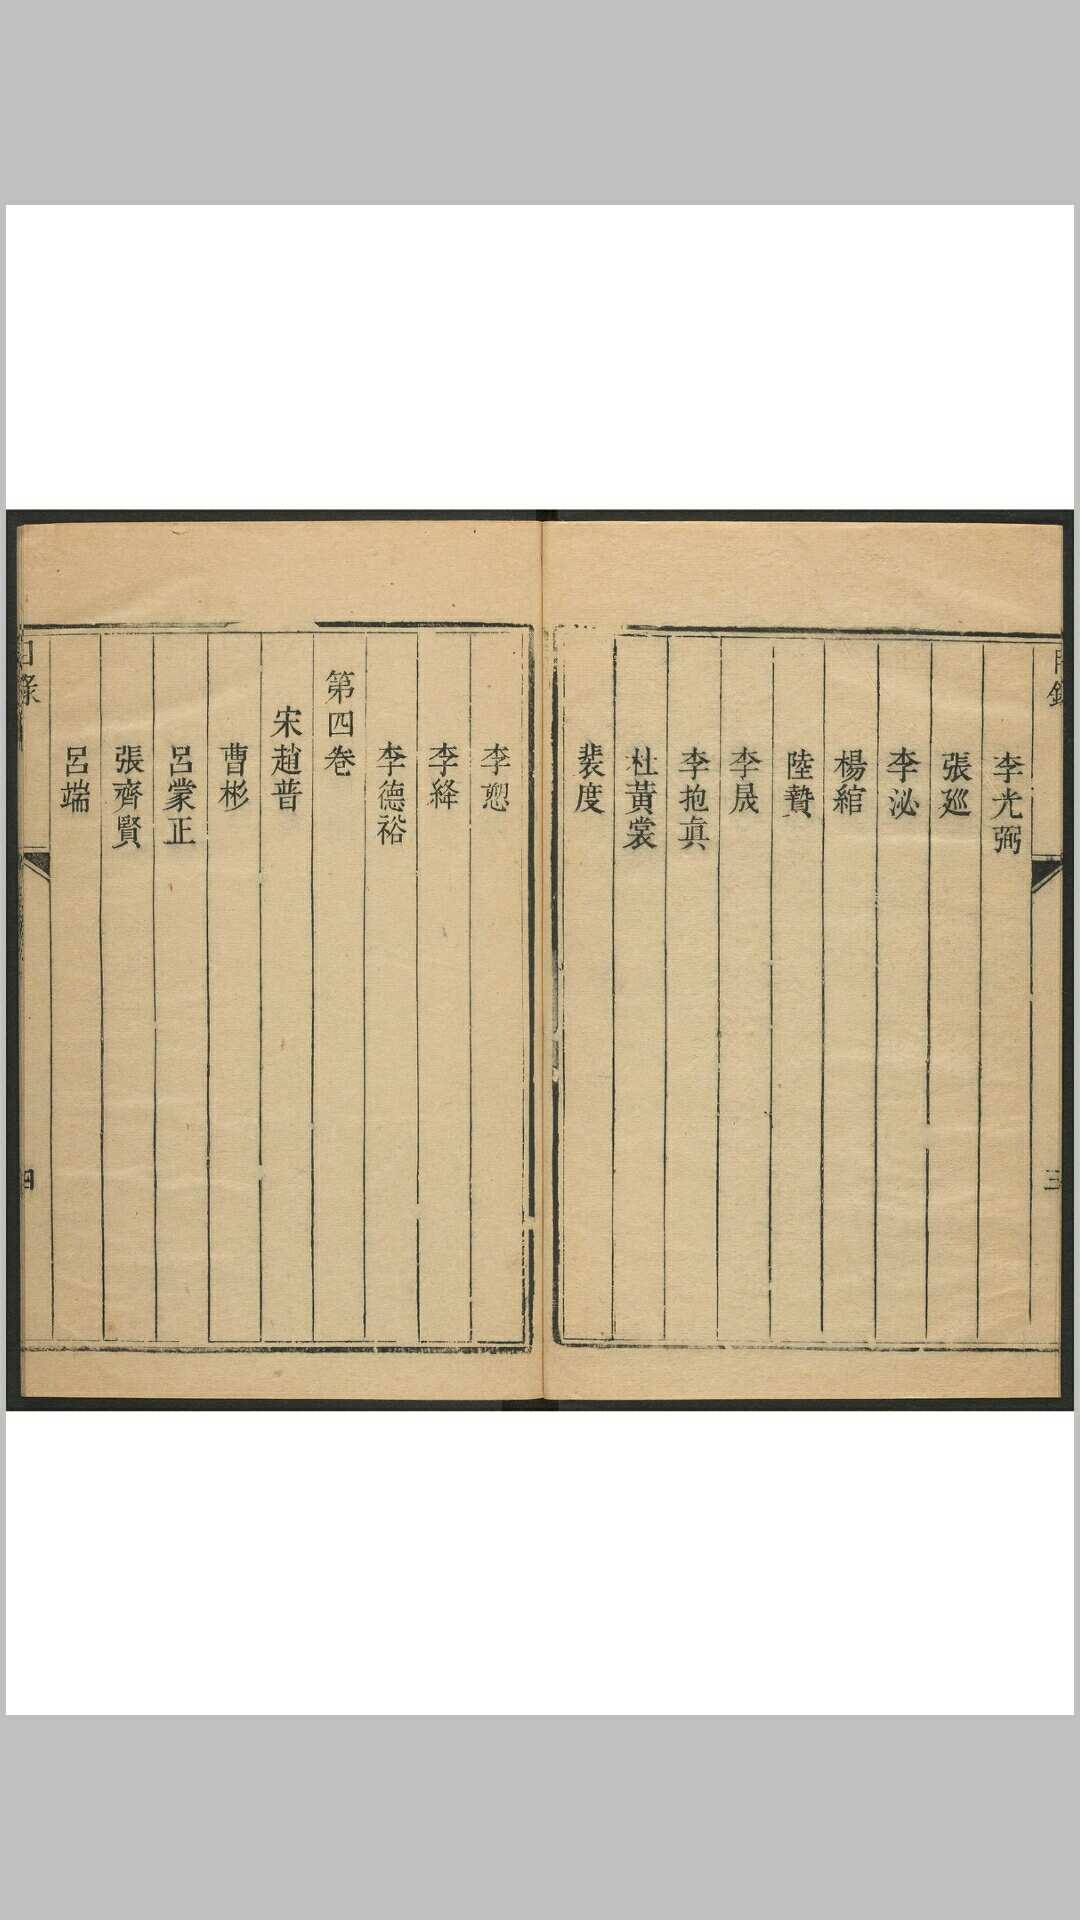 目錄
三
李光弼
張廵
李泌
楊綰
陸贄
李晟
李抱眞
杜黃裳
裴度
李愬
李絳
李德裕
第四卷
宋趙普
曹彬
呂蒙正
張齊賢
呂端
目錄
四